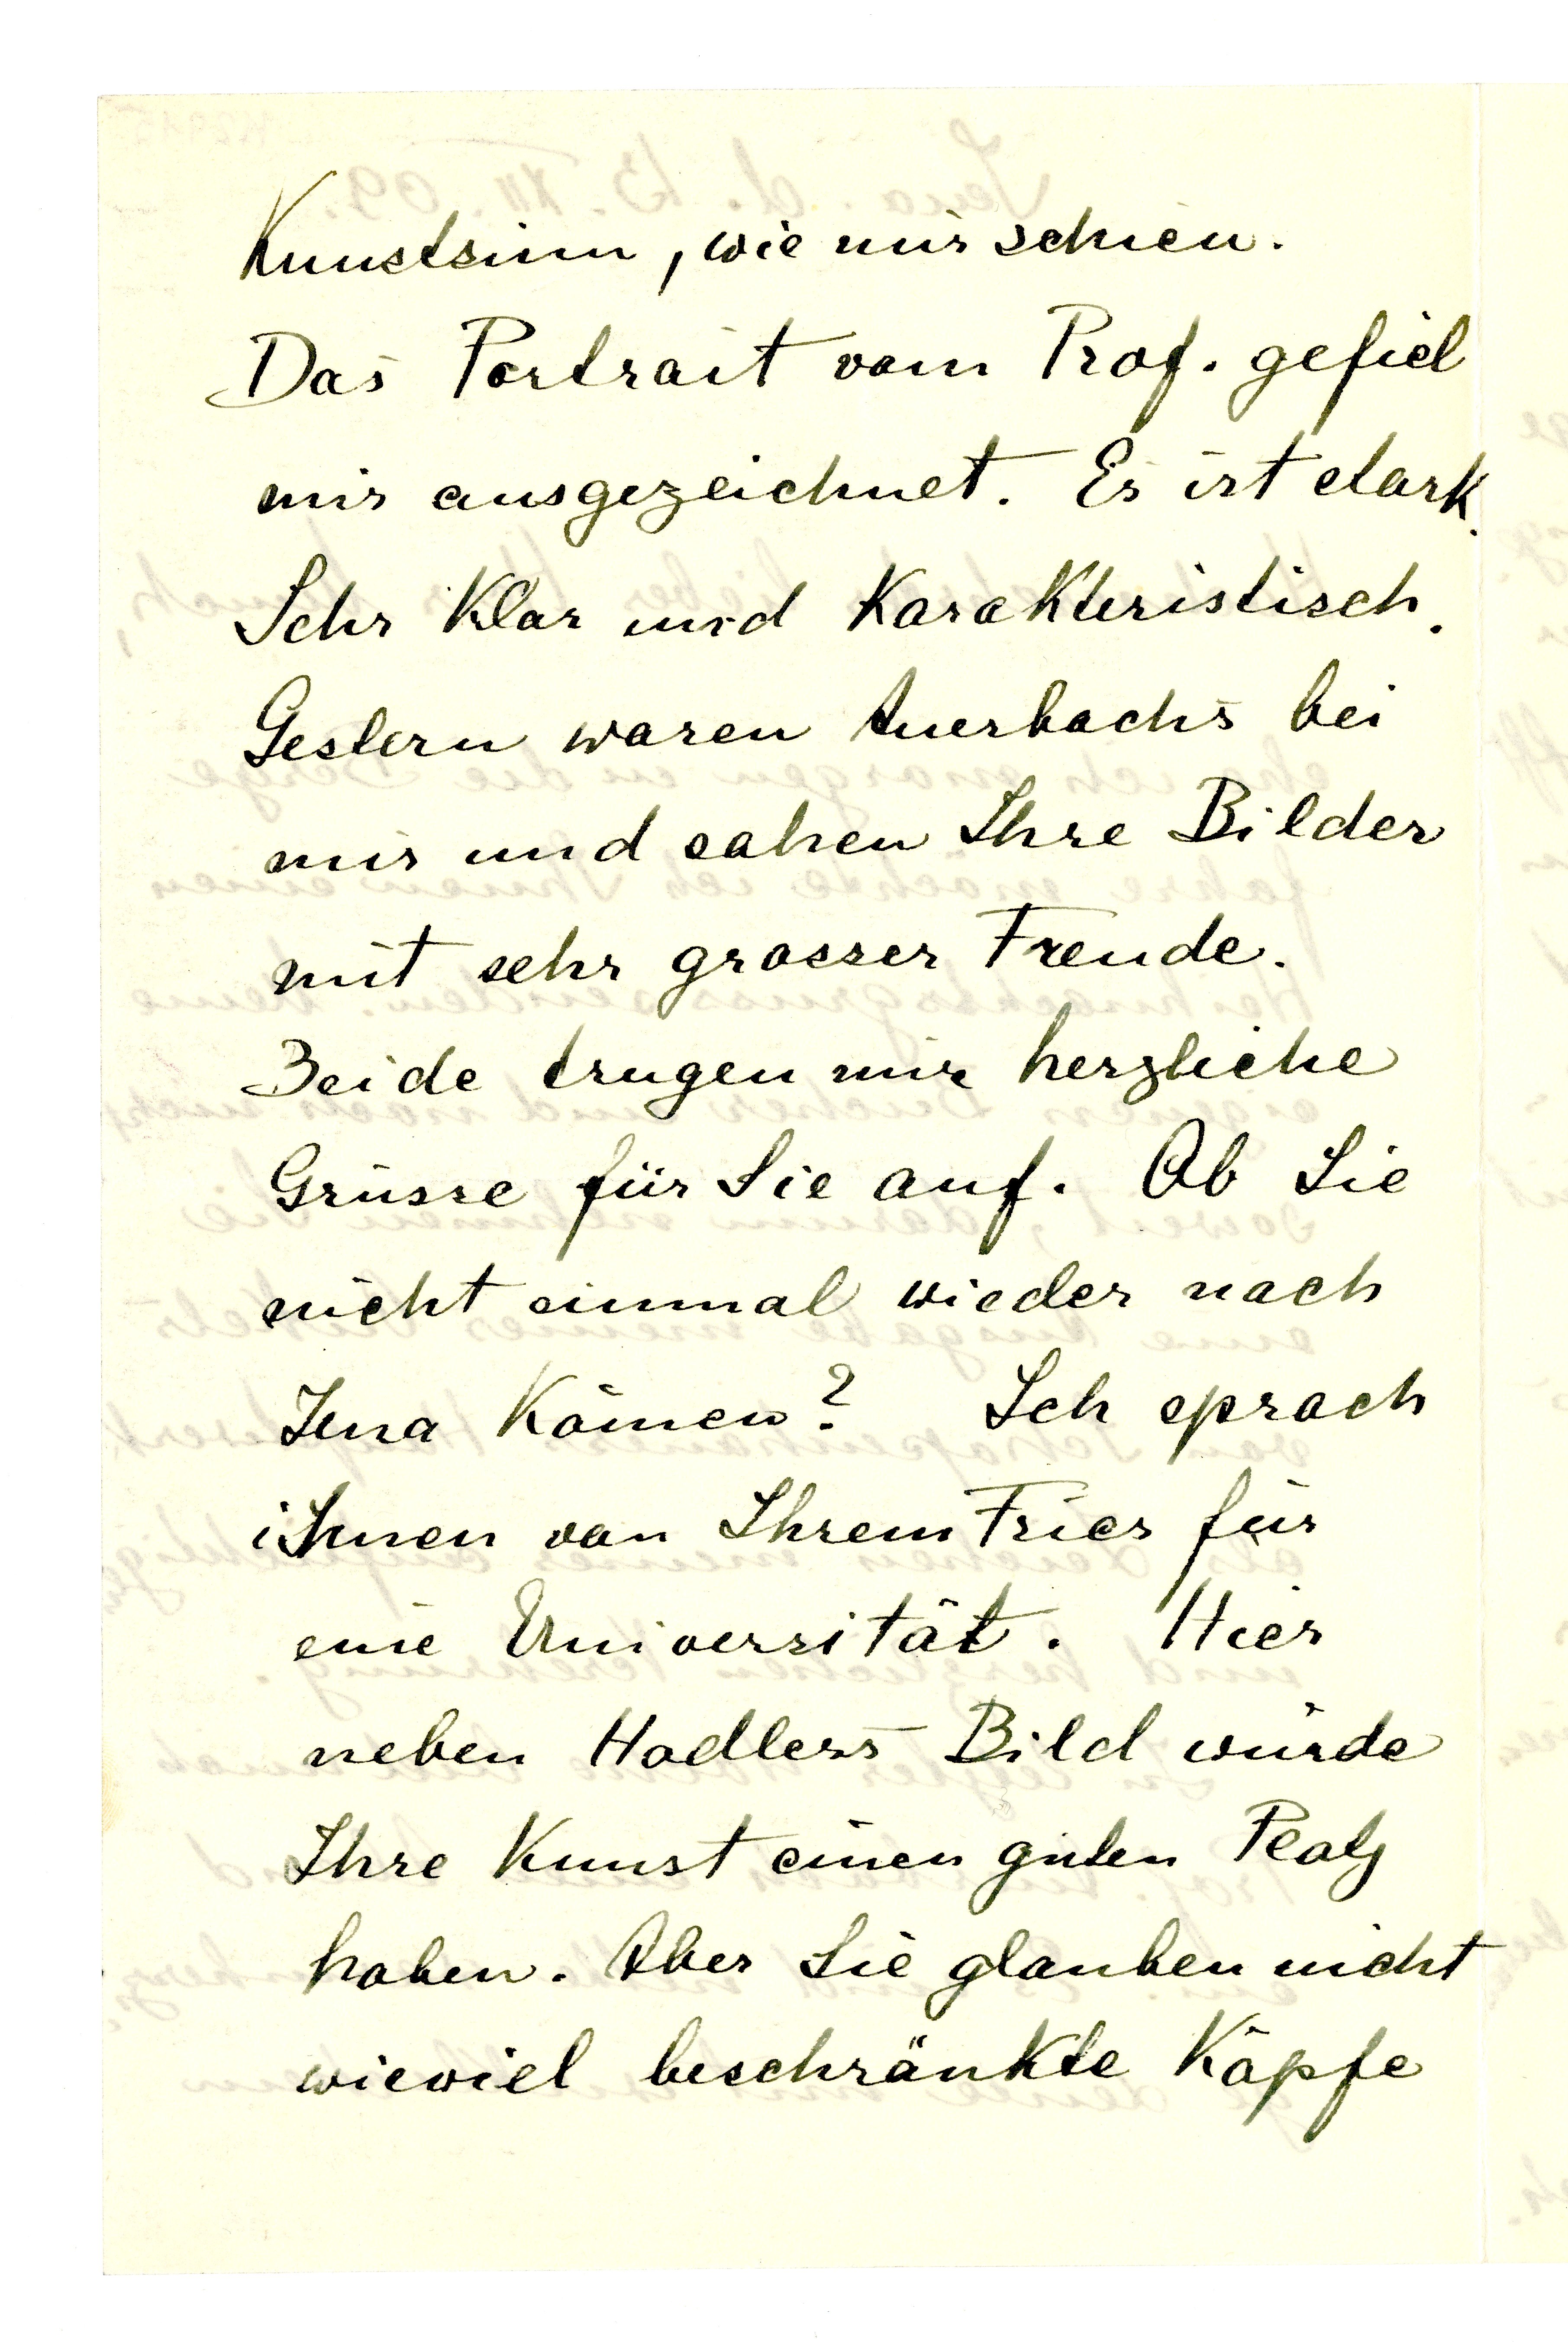 Kunstsinn, wie mir schien.
Das Portrait vom Prof. gefiel
mir ausgezeichnet. Es ist stark.
Sehr klar und karakteristisch.
Gestern waren Auerbachs bei
mir und sahen Ihre Bilder
mit sehr grosser Freude.
Beide trugen mir herzliche
Grüsse für Sie auf. Ob Sie
nicht einmal wieder nach
Jena kämen? Ich sprach
ihnen von Ihrem Fries für
eine Universität. Hier
neben Hodlers Bild würde
Ihre Kunst einen guten Platz
haben. Aber Sie glauben nicht
wieviel beschränkte Köpfe